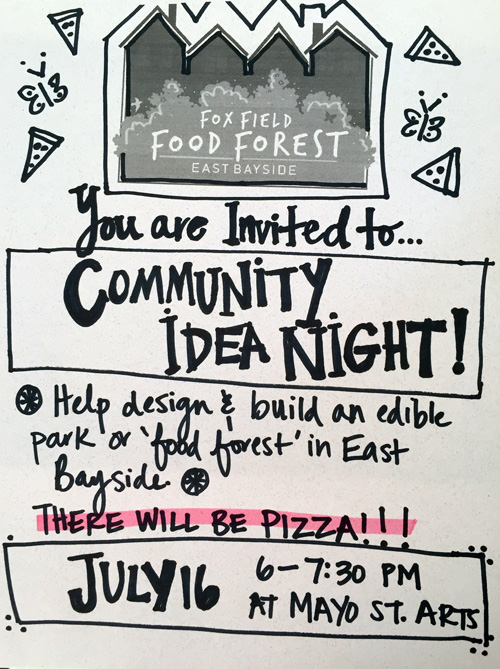 FOX FIELD
FOOD FOREST
EAST BAYSIDE
You are Invited to...
COMMUNITY
IDEA NIGHT!
Help design & build an edible
park or 'food forest' in East
Bayside
THERE WILL BE PIZZA!!!
JULY 16
6-7:30 PM
AT MAYO ST. ARTS